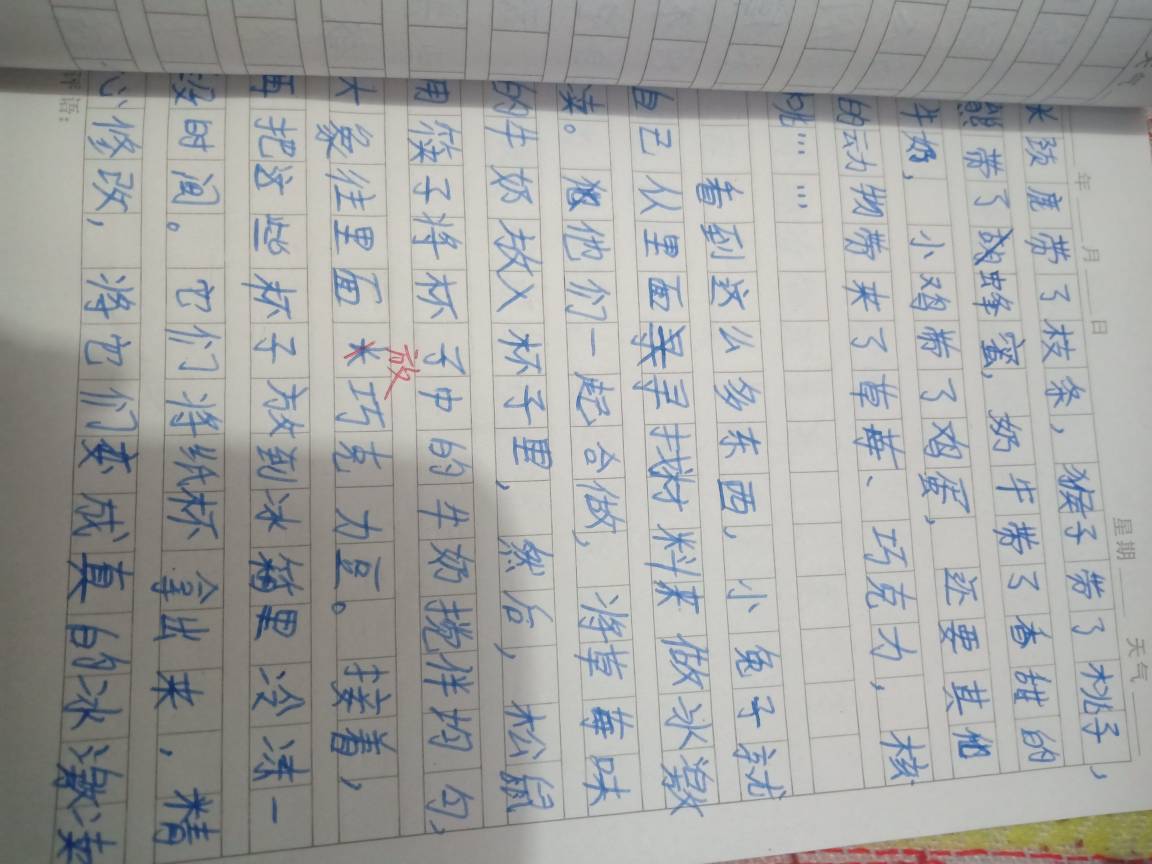 年 月 日 星期 天气
米 颈鹿带了枝条，猴子带了桃子，
熊带了蜂蜜，奶牛带了香甜的
牛奶，小鸡带了鸡蛋，还要其他
的动物带来了草莓、巧克力，核
桃……
看到这么多东西，小兔子就
自己从里面寻找材料来做冰激
凌。他们一起合做，将草莓味
的牛奶放入杯子里，然后，松鼠
用筷子将杯子中的牛奶搅伴均匀，
大象往里面放巧克力豆。接着，
再把这些杯子放到冰箱里冷冻一
没时间。它们将纸杯拿出来，精
心修改，将它们变成真的冰激凌
评语：